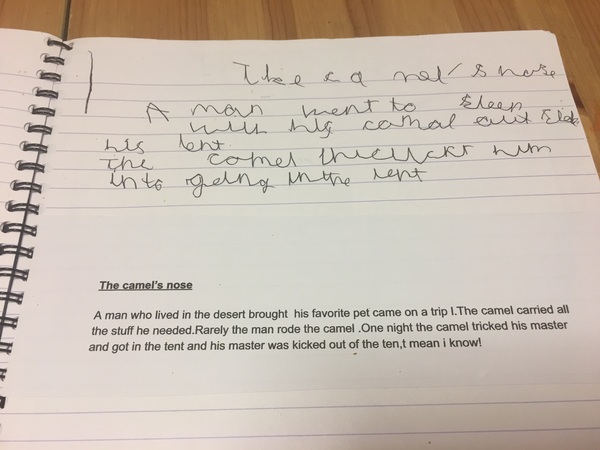 The ca mel's nose
A man went to sleep
with his camal out side
his tent
The camel him
into going in the tent
The camel's nose
A man who lived in the desert brought his favorite pet came on a trip I.The camel carried all
the stuff he needed.Rarely the man rode the camel .One night the camel tricked his master
and got in the tent and his master was kicked out of the ten,t mean i know!